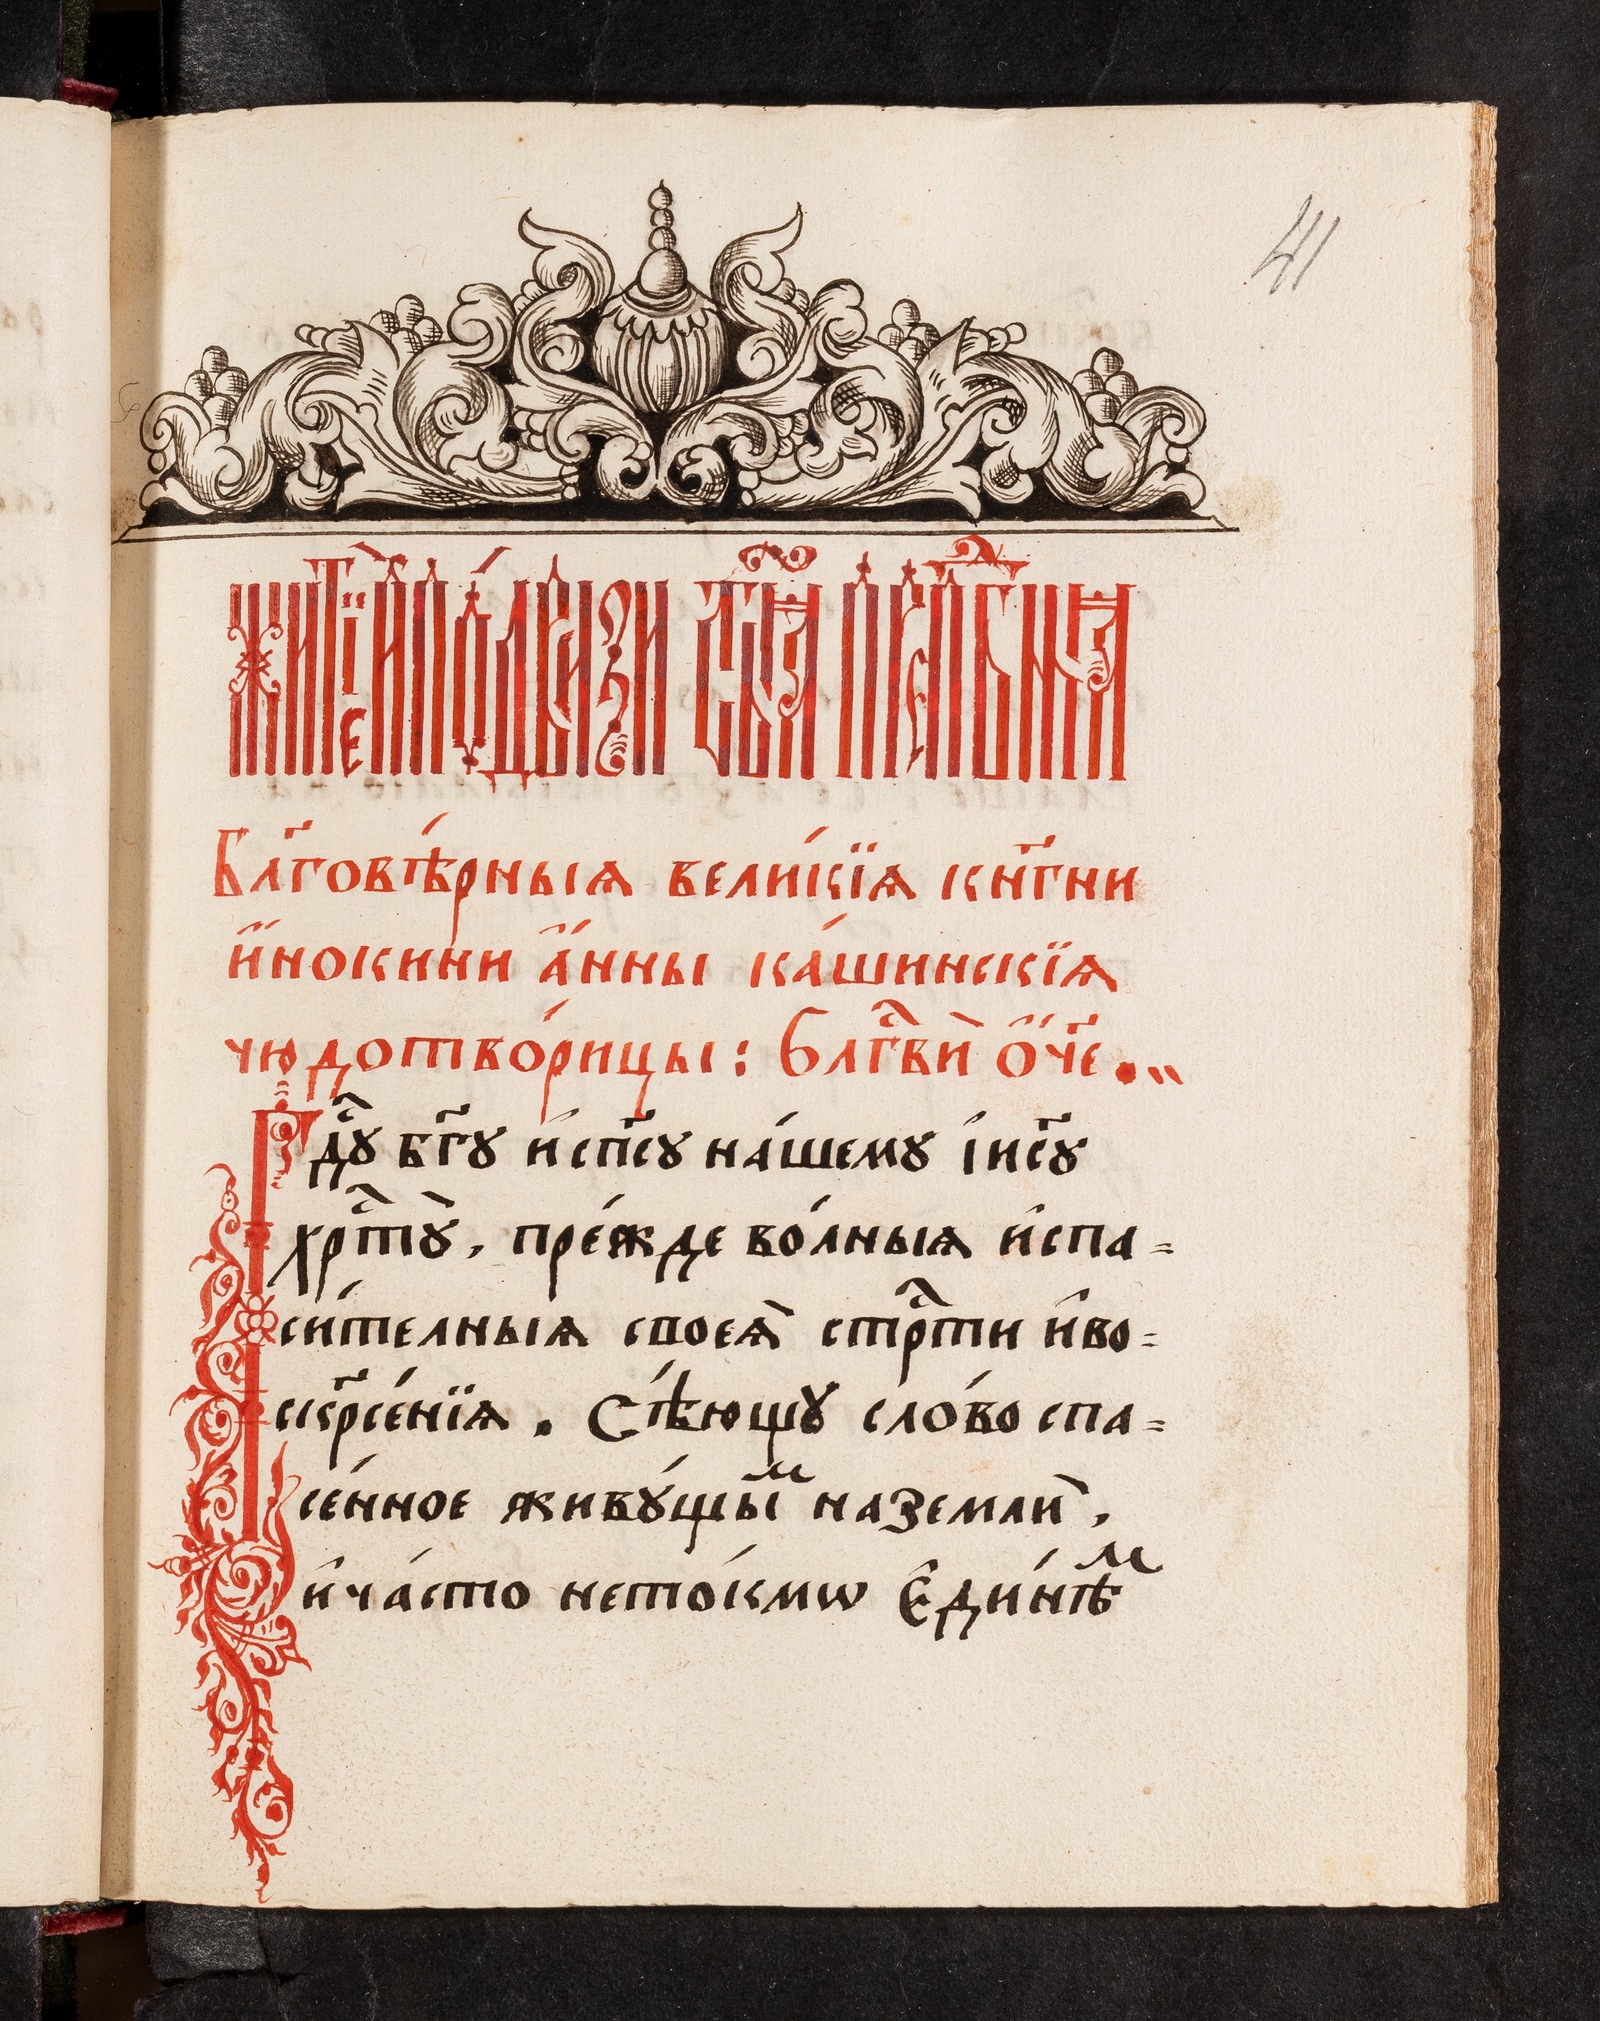 41
Житїе и подвизи ст҃ыѧ прпⷣбныѧ
Бл҃говѣ́рныѧ вели́кїѧ кн҃гни
и҆́нокини а҆́нны ка́шинскїѧ
чюдотво́рицы: Блгⷭ҇вѝ ѻ҆́ч҃е
Гдⷭ҇ꙋ бг҃ꙋ и҆ сп҃сꙋ на́шемꙋ і҆ис҃ꙋ
хрⷭ҇тꙋ̀, пре́жде во́лныѧ и҆ спа=
си́телныѧ своеѧ̀ стрⷭ҇ти и҆ во=
скр҃се́нїѧ. Сѣ́ющꙋ сло́во спа=
се́нное живꙋ́щыⷨ на землѝ,
и҆ ча́сто не то́кмѡ є҆ди́нѣⷨ